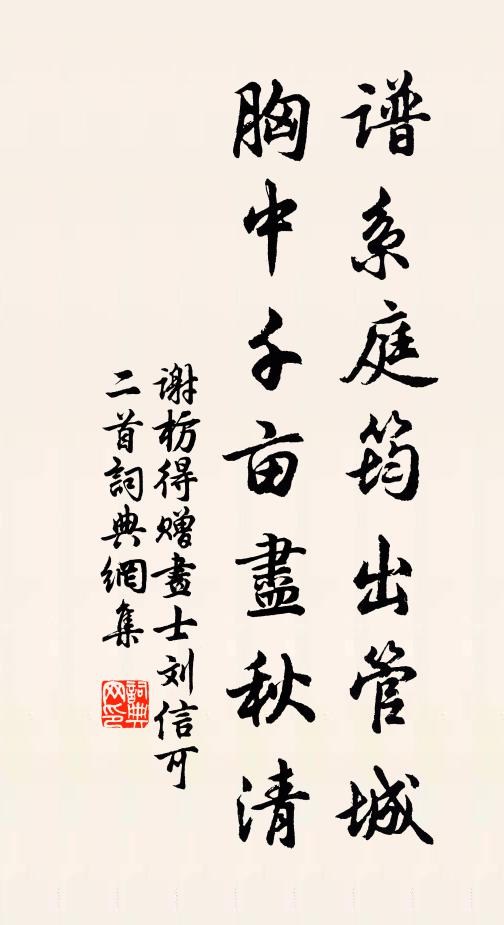 谱系庭筠出管城
胸中千亩盡秋清
谢枋得赠畫士刘信可
二首詞典網集
詞典
网印